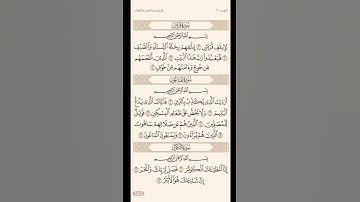 سُورَةُ قُرَيْشٍ
بِسْمِ اللَّهِ الرَّحْمَٰنِ الرَّحِيمِ
لِإِيلَافِ قُرَيْشٍ ١ إِيلَافِهِمْ رِحْلَةَ الشِّتَاءِ وَالصَّيْفِ
٢ فَلْيَعْبُدُوا رَبَّ هَٰذَا الْبَيْتِ ٣ الَّذِي أَطْعَمَهُم
مِّن جُوعٍ وَآمَنَهُم مِّنْ خَوْفٍ ٤
سُورَةُ المَاعُونِ
بِسْمِ اللَّهِ الرَّحْمَٰنِ الرَّحِيمِ
أَرَأَيْتَ الَّذِي يُكَذِّبُ بِالدِّينِ ١ فَذَٰلِكَ الَّذِي يَدُعُّ
الْيَتِيمَ ٢ وَلَا يَحُضُّ عَلَىٰ طَعَامِ الْمِسْكِينِ ٣ فَوَيْلٌ
لِّلْمُصَلِّينَ ٤ الَّذِينَ هُمْ عَن صَلَاتِهِمْ سَاهُونَ
٥ الَّذِينَ هُمْ يُرَاءُونَ ٦ وَيَمْنَعُونَ الْمَاعُونَ ٧
سُورَةُ الكَوْثَرِ
بِسْمِ اللَّهِ الرَّحْمَٰنِ الرَّحِيمِ
إِنَّا أَعْطَيْنَاكَ الْكَوْثَرَ ١ فَصَلِّ لِرَبِّكَ وَانْحَرْ ٢
إِنَّ شَانِئَكَ هُوَ الْأَبْتَرُ ٣